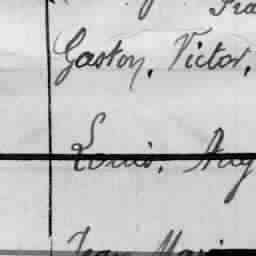 Gaston, Victor,
Louis, Aug
Jean Marie